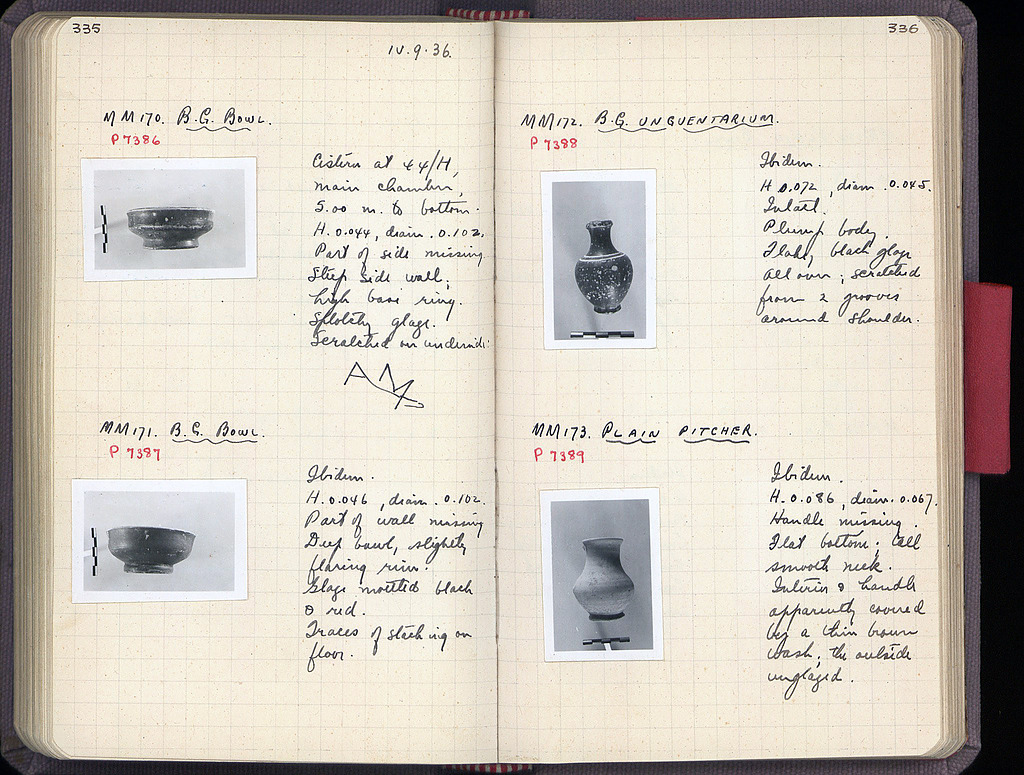 335
IV.9.36.
MM170. B.G. BOWL.
P 7386
Cistern at 44/H,
main chamber,
5.00 m. to bottom.
H. 0.044, diam. 0.102.
Part of side missing.
Steep side wall;
high base ring.
Splotchy glaze.
Scratched on underside:
MM171. B.G. BOWL.
P 7387
Ibidem.
H. 0.046, diam. 0.102.
Part of wall missing
Deep bowl, slightly
flaring rim.
Glaze mottled black
& red.
Traces of stacking on
floor.
336
MM172. B.G. UNGUENTARIUM.
P 7388
Ibidem.
H 0.072, diam. 0.045.
Intact.
Plump body.
Flaky black glaze
all over; scratched
from 2 grooves
around shoulder.
MM173. PLAIN PITCHER.
P 7389
Ibidem.
H. 0.086, diam. 0.067.
Handle missing.
Flat bottom; tall
smooth neck.
Interior & handle
apparently covered
by a thin brown
wash; the outside
unglazed.